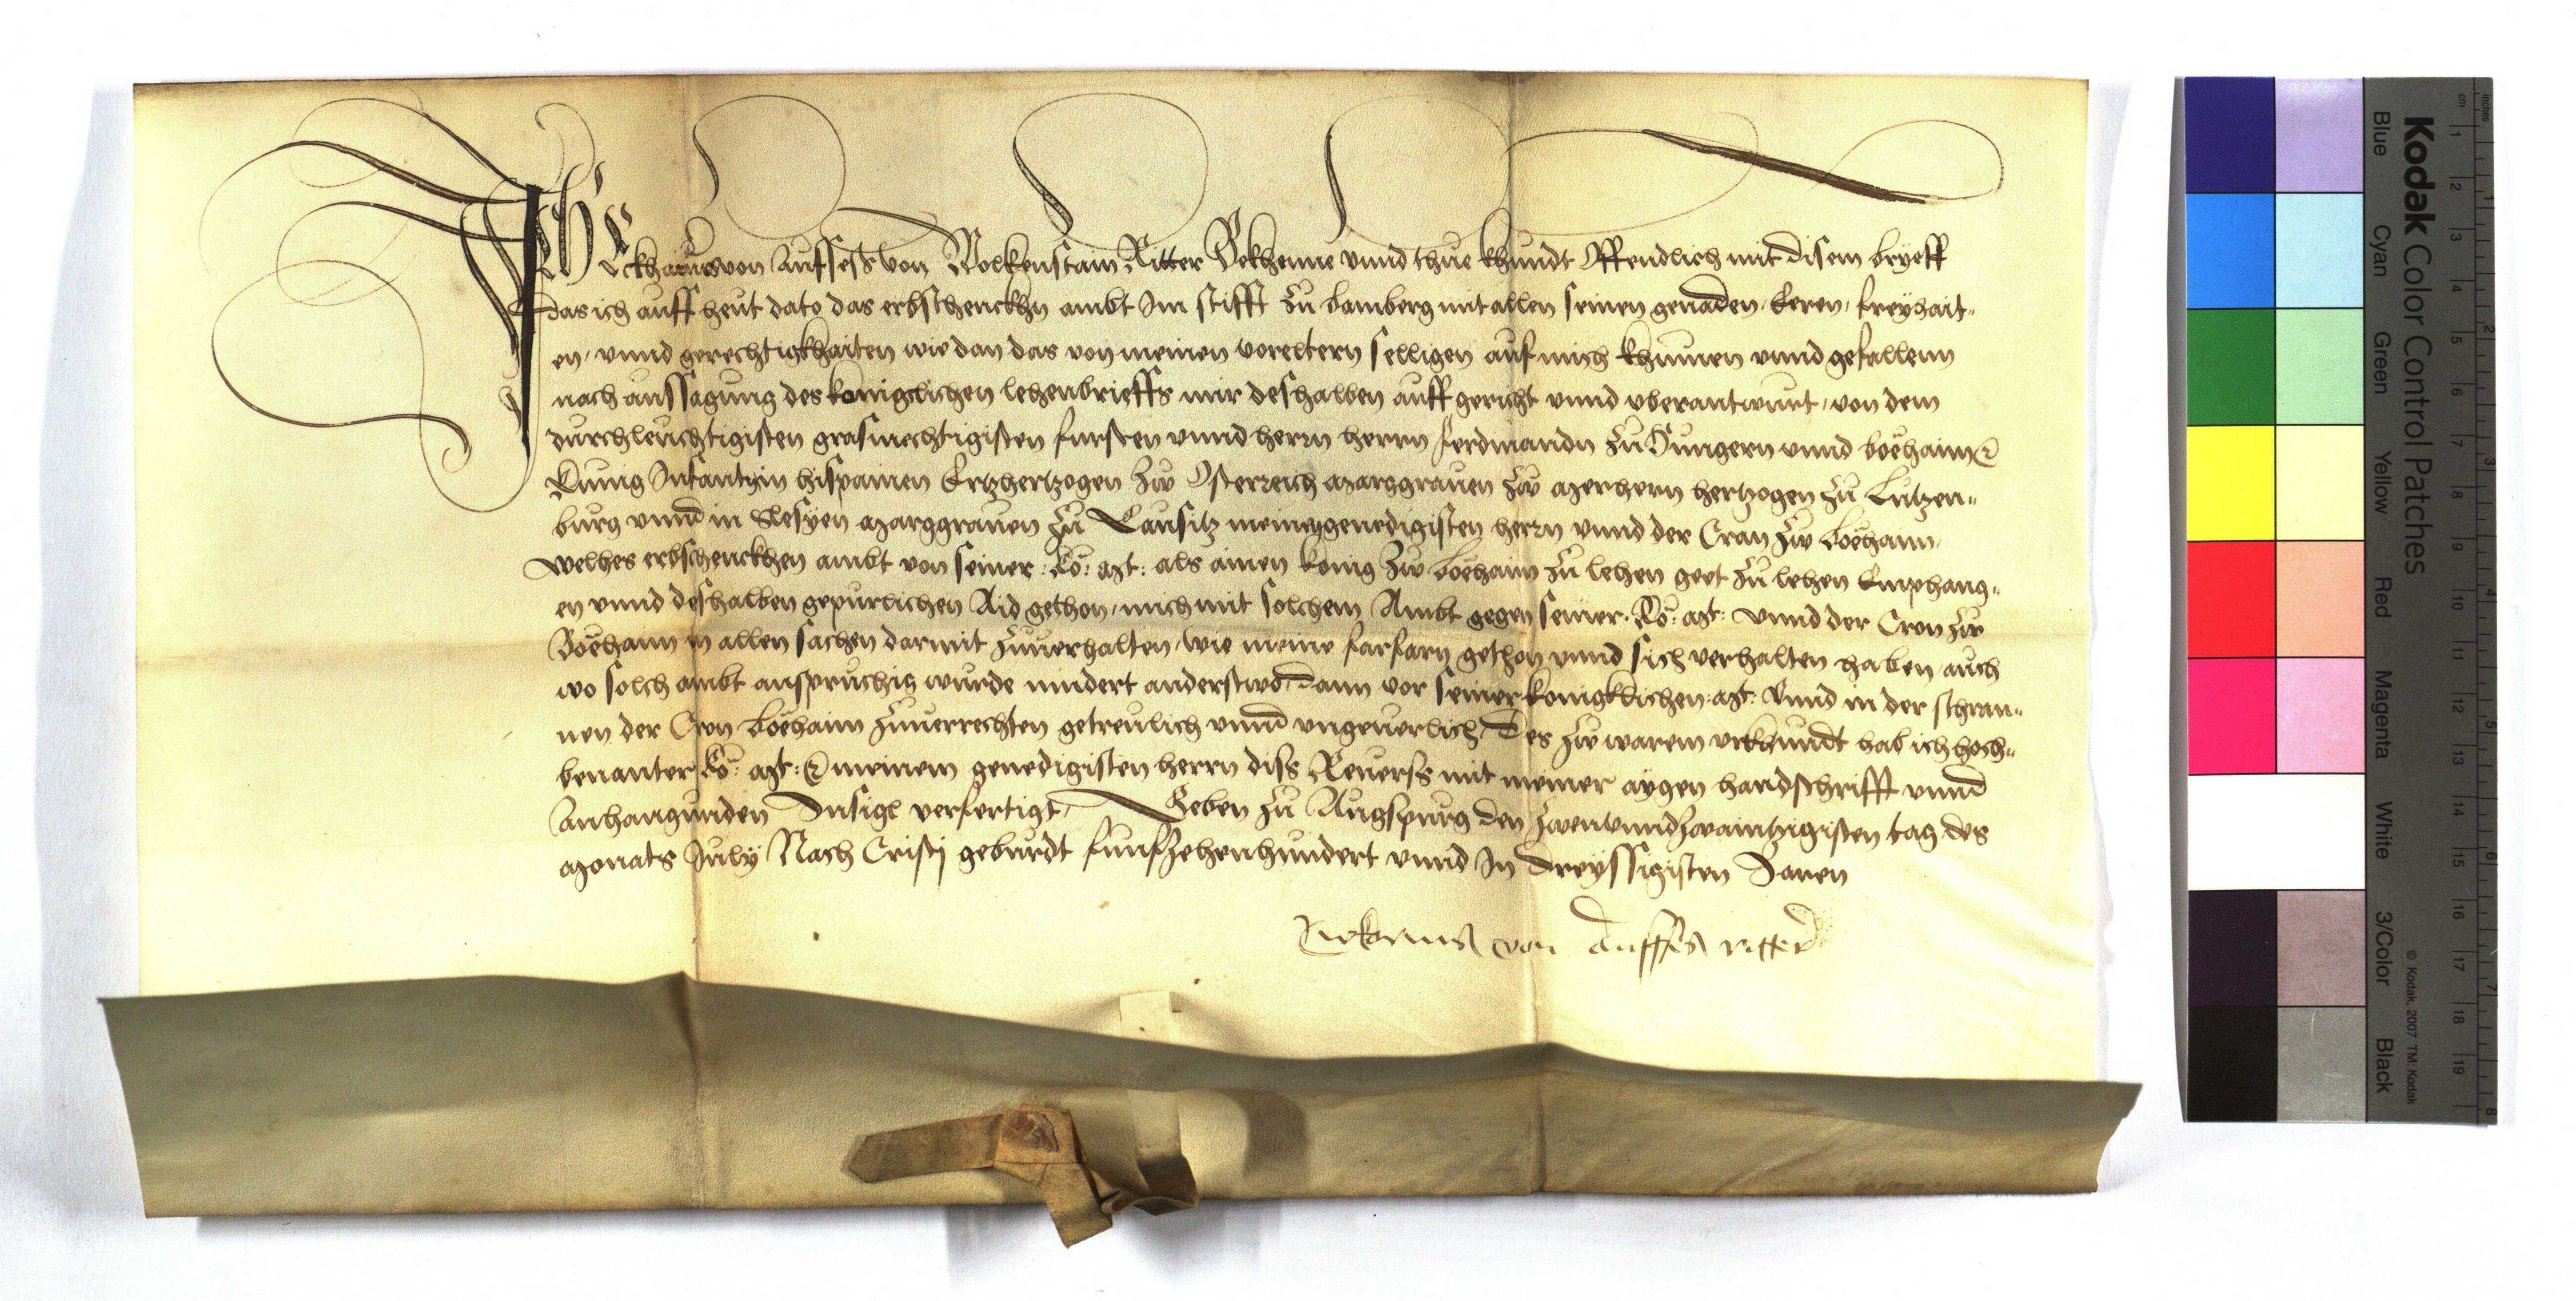 ICh Eckharius von Aufses von Wolkenstain Ritter Bekhenne vnnd thue khundt Offenndlich mit disem bryeff
das ich auff heut dato das erbschenckhn ambt Im stifft zu Bamberg mit allen seinen genaden, Eeren, freyhait-
en, vnnd gerechtigkhaiten wie dan das von meinen voreltern selligen auf mich khumen vnnd gefallenn
nach aussagung des koniglichen lehenbrieffs mir deshalben auff gericht vnnd vberantwurt, von dem
durchleuchtigisten grasmechtigisten fursten vnnd herrn herrn ferdinandn zu Hungern vnnd Boëhaim
Kunig Infant in hispanien Ertzhertzogen zw Osterreich Marggrauen zw Merhern hertzogen zu Lutzen-
burg vnnd in Slesyen Marggrauen zu Lausitz meinem genedigisten herrn vnnd der Cran zw Boëhaim
welhes erbschenckhen ambt von seiner Ko: Mt: als ainen konig zw Boëhaim zu lehen geet zu lehen Emphang-
en vnnd deshalben gepurlichen Aid gethon, mich mit solchem Ambt gegen seiner Ko: Mt: vnnd der Cron zw
Boëhaim in allen sachen darmit zuuerhalten, wie meine farfarn gethon vnnd sich verhalten haben, auch
wo solch ambt anspruchig wurde nindert anderstwo, Dann vor seiner konigklichen: Mt: Vnnd in der schran-
nen der Cron Boëhaim zuuerrechten getreulich vnnd vngeuerlich, Des zw warem vrkhundt hab ich hoch-
benanter Ko: Mt: meinem genedigisten herrn diss Reuerss mit meiner aygen handschrifft vnnd
Anhangunden Insigl verfertigt, Geben zu Augspurg den zwenvnndzwaintzigisten tag des
Monats July Nach Cristj geburdt funfzehenhundert vnnd In dreyssigisten Jaren
von Auffses ritter
Kodak Color Control Patches
Blue Cyan Green Yellow Red Magenta White 3/Color Black
© Kodak, 2007 TM: Kodak
inches 1 2 3 4 5 6 7 8
cm 1 2 3 4 5 6 7 8 9 10 11 12 13 14 15 16 17 18 19